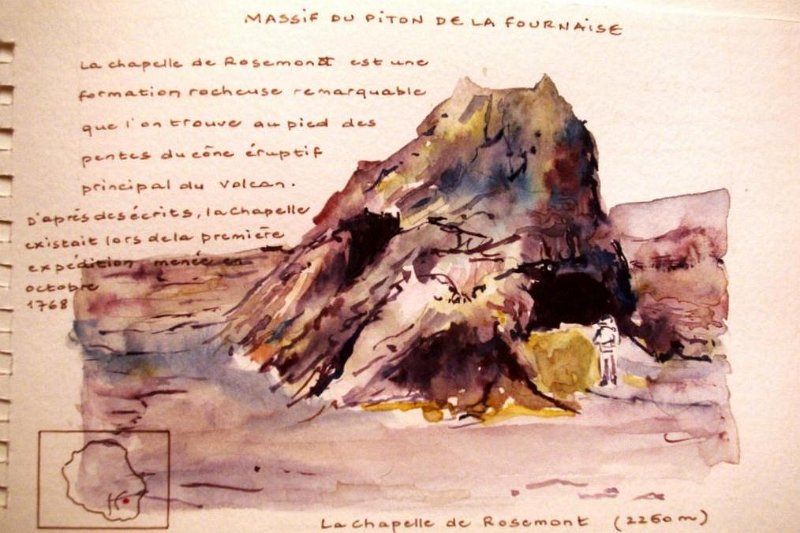 MASSIF DU PITON DE LA FOURNAISE
La chapelle de Rosemont est une
formation rocheuse remarquable
que l'on trouve au pied des
pentes du cône éruptif
principal du volcan.
D'après des écrits, la chapelle
existait lors de la première
expédition menée en
octobre
1768
La chapelle de Rosemont (2260m)